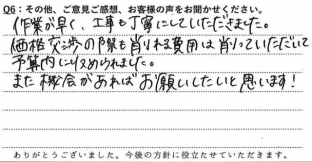 Q6：その他、ご意見ご感想、お客様の声をお聞かせください。
作業が早く、工事も丁寧にしていただきました。
価格交渉の際も削れる費用は削っていただいて
予算内に収められました。
また機会があればお願いしたいと思います！
ありがとうございました。今後の方針に役立たせていただきます。